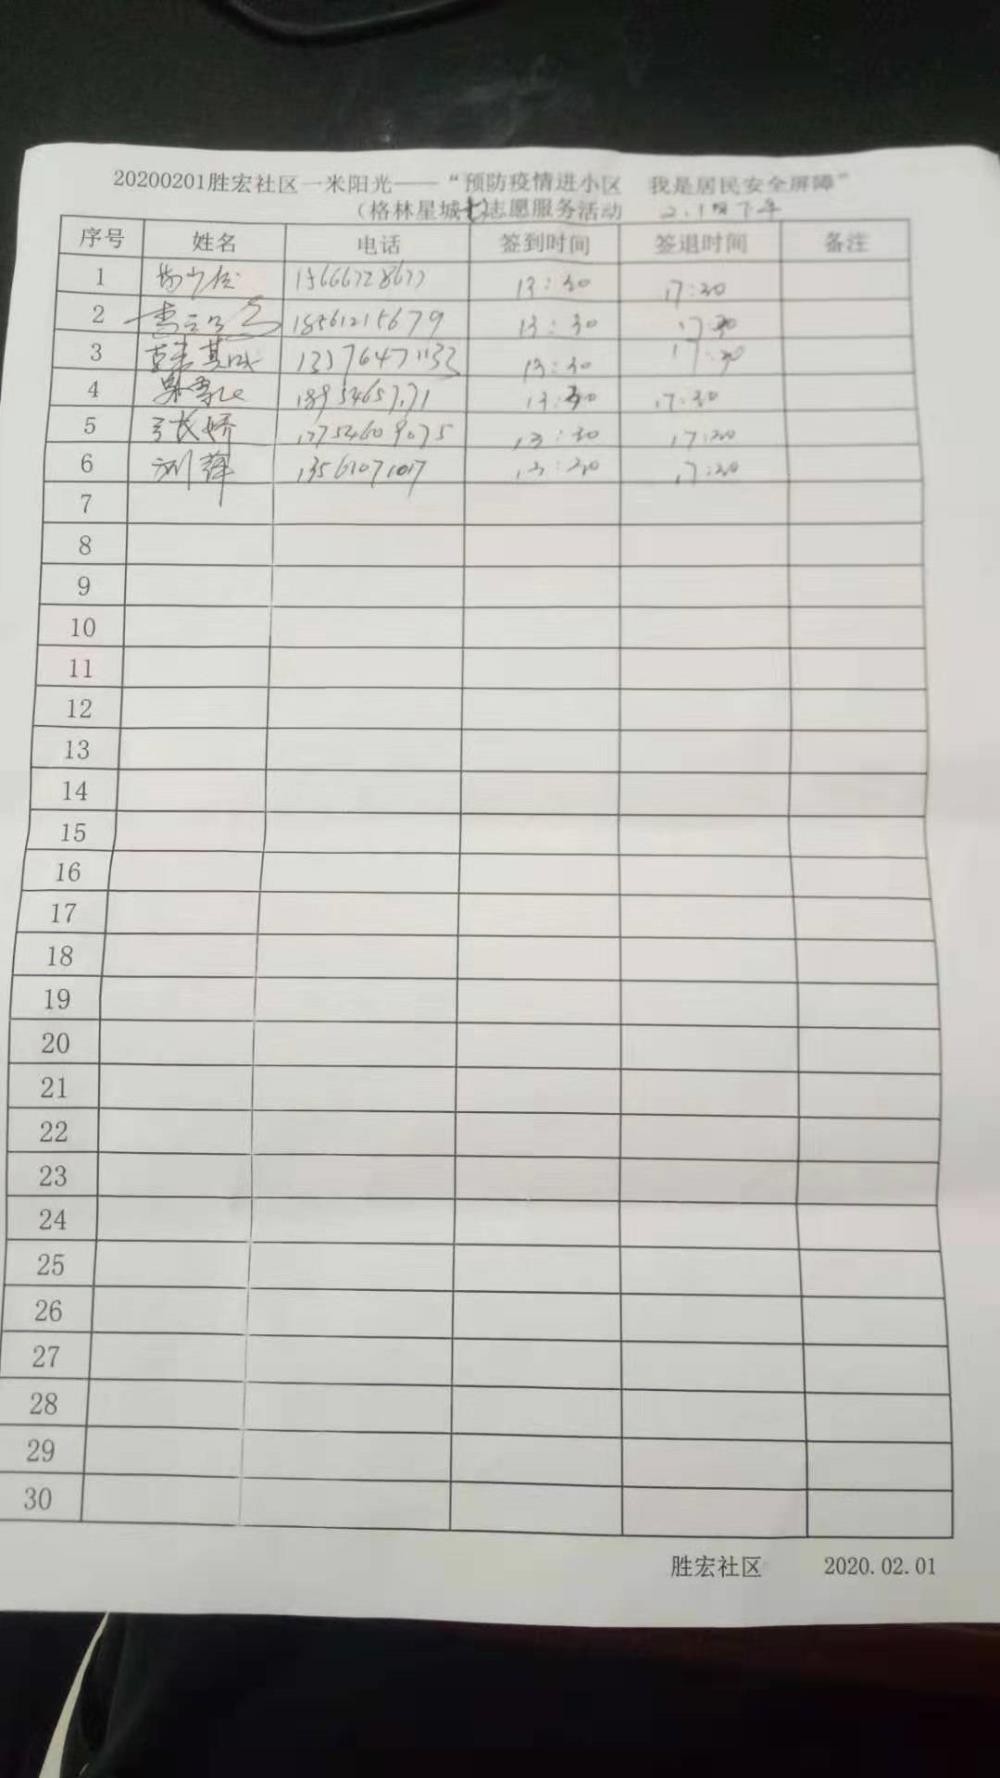 20200201胜宏社区一米阳光——“预防疫情进小区 我是居民安全屏障”
（格林星城 志愿服务活动 2.1日下午
序号 姓名 电话 签到时间 签退时间 备注
1 13:30 17:30
2 18561215679 13:30 17:30
3 13:30 17:30
4 13:30 17:30
5 张娇 13:30 17:30
6 刘萍 13561071017 13:30 17:30
7
8
9
10
11
12
13
14
15
16
17
18
19
20
21
22
23
24
25
26
27
28
29
30
胜宏社区 2020.02.01